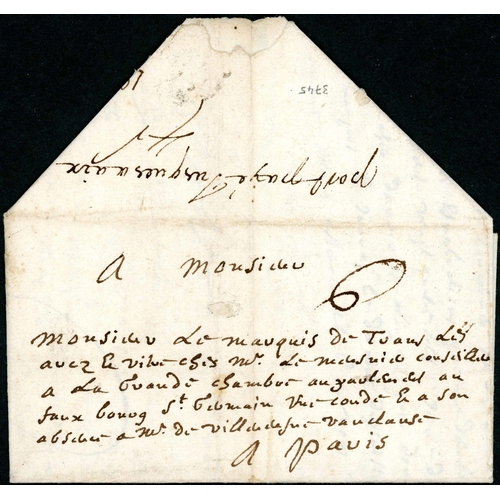 3745
port payé Jusques a aix
A Monsieur
6
Monsieur Le marquis de Trans
ches Mr. Le mesnié conseiller
a La Grande chambre au parlement au
faux bourg St. Germain rue condé & a son
absence a Mr. de Villeneufve vauclause
A Paris